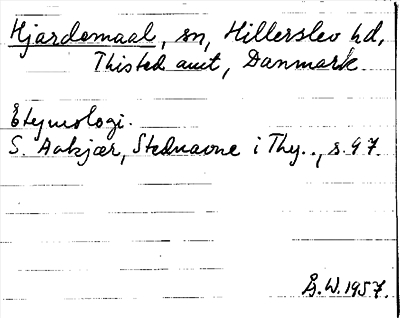 Hjardemaal, sn, Hillerslev hd,
Thisted amt, Danmark.
Etymologi.
S. Aakjær, Stednavne i Thy.., s. 97.
Å.W. 1957.